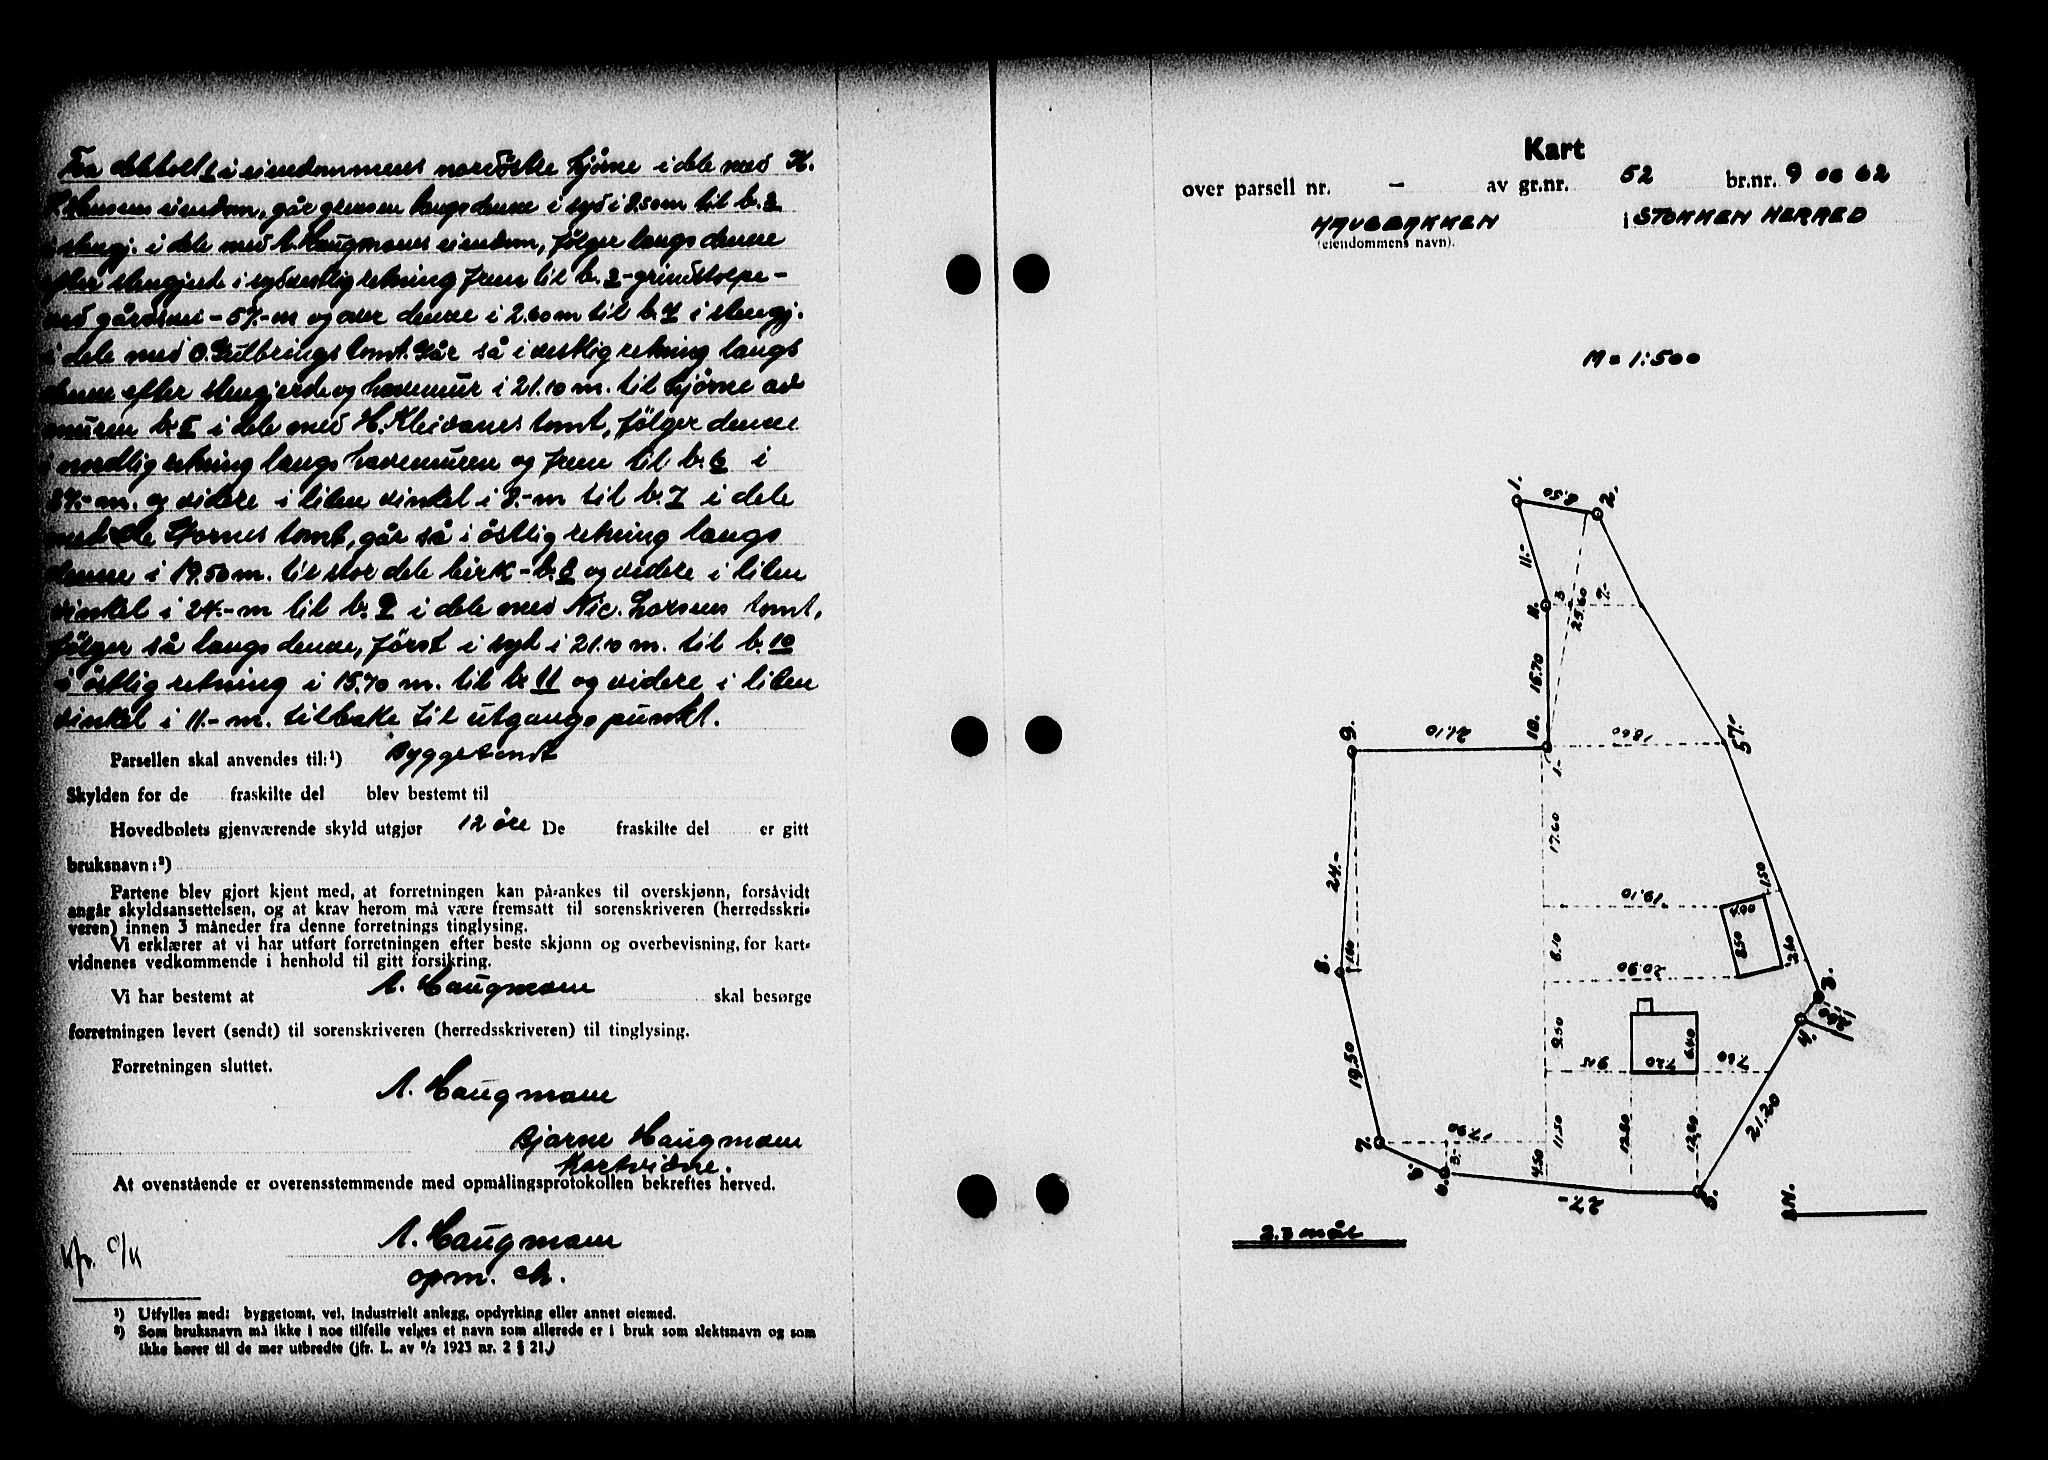 Fra dekbolt 1 i eiendommens nordöstre hjörne i dele med K.
Hansens eiendom, går grensen langs denne i syd i 8.50 m til b. 2
i stengj. i dele med A. Haugmoens eiendom, fölger langs denne
efter stengjerde i sydvestlig retning frem til b. 3 - grindstolpe -
ved gårdsvei - 57.- m og over denne i 2.60 m til b. 4 i stengj.
i dele med O. Gulbrings tomt. Går så i vestlig retning langs
denne efter stengjerde og havemur i 21.10 m. til hjörne av
muren b. 5 i dele med H. Kleivanes tomt, fölger denne
i nordlig retning langs havemuren og frem til b. 6 i
27.- m. og videre i liten vinkel i 8.- m til b. 7 i dele
med tomt, går så i östlig retning langs
denne i 19.50 m. til stor dele birk - b. 8 og videre i liten
vinkel i 24.- m til b. 9 i dele med Nic. Larsens tomt,
fölger så langs denne, först i syd i 21.10 m. til b. 10
i östlig retning i 15.70 m. til b. 11 og videre i liten
vinkel i 11.- m. tilbake til utgangspunkt.
Parsellen skal anvendes til:¹) Byggetomt
Skylden for de fraskilte del blev bestemt til
Hovedbølets gjenværende skyld utgjør 12 öre De fraskilte del er gitt
bruksnavn:²)
Partene blev gjort kjent med, at forretningen kan på-ankes til overskjønn, forsåvidt
angår skyldsansettelsen, og at krav herom må være fremsatt til sorenskriveren (herredsskri-
veren) innen 3 måneder fra denne forretnings tinglysing.
Vi erklærer at vi har utført forretningen efter beste skjønn og overbevisning, for kart-
vidnenes vedkommende i henhold til gitt forsikring.
Vi har bestemt at A. Haugmoen skal besørge
forretningen levert (sendt) til sorenskriveren (herredsskriveren) til tinglysing.
Forretningen sluttet.
A. Haugmoen
Bjarne Haugmoen
Kartvidne.
At ovenstående er overensstemmende med opmålingsprotokollen bekreftes herved.
A. Haugmoen
opm. ch.
¹) Utfylles med: byggetomt, vei, industrielt anlegg, opdyrking eller annet øiemed.
²) Som bruksnavn må ikke i noe tilfelle velges et navn som allerede er i bruk som slektsnavn og som
ikke hører til de mer utbredte (jfr. L. av ⁹/₂ 1923 nr. 2 § 21.)
Kart
over parsell nr. - av gr.nr. 52 br.nr. 9 og 62
HAUGBAKKEN i STOKKEN HERRED
(eiendommens navn).
M = 1:500
1.
8.50
2.
11.-
11.
3
25.60
9.-
15.70
9.
21.10
10.
18.60
57.-
1.-
24.-
17.60
19.10
1.50
4.00
8.50
2.60
8.
1.60
6.10
20.90
3.
2.60
4.
9.50
9.15
7.20
6.40
7.60
19.50
21.20
7.
17.90
11.50
12.80
12.80
8.
6.
3.-
4.50
27.-
5.
2.3 mål